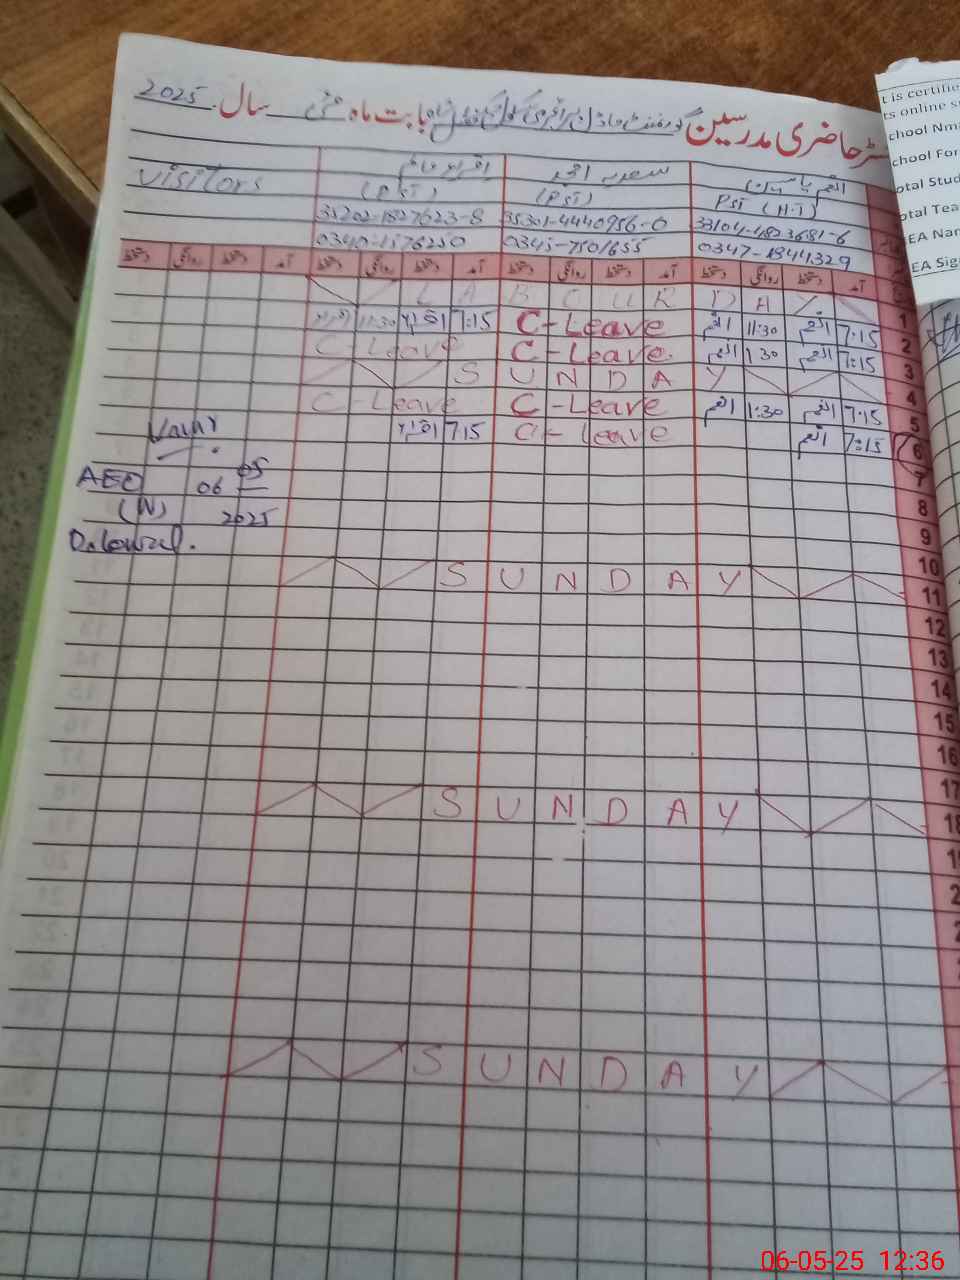 رجسٹر حاضری مدرسین گورنمنٹ ماڈل پرائمری سکول بابت ماہ مئی سال 2025
انعم یاسین سعدیہ احمد اقراء عالم Visitors
PST (H.T) (PST) (PST)
33104-4823681-6 35301-4440956-0 35202-1827623-8
0347-1844329 0345-7501655 0340-1576250
آمد دستخط روانگی دستخط آمد دستخط روانگی دستخط آمد دستخط روانگی دستخط آمد دستخط روانگی دستخط
1 L A B O U R D A Y
2 7:15 انعم 11:30 انعم C-Leave 7:15 اقراء 11:30 اقراء
3 7:15 انعم 1:30 انعم C-Leave. C-Leave
4 S U N D A Y
5 7:15 انعم 1:30 انعم C-Leave C-Leave
6 7:15 انعم C-Leave 7:15 اقراء
7
AEO 06 05
8
(W) 2025
9
10
11 S U N D A Y
12
13
14
15
16
17
18 S U N D A Y
S U N D A Y
t is certifie
ts online s
chool Nm
chool For
otal Stud
otal Tea
EA Nar
EA Sig
06-05-25 12:36